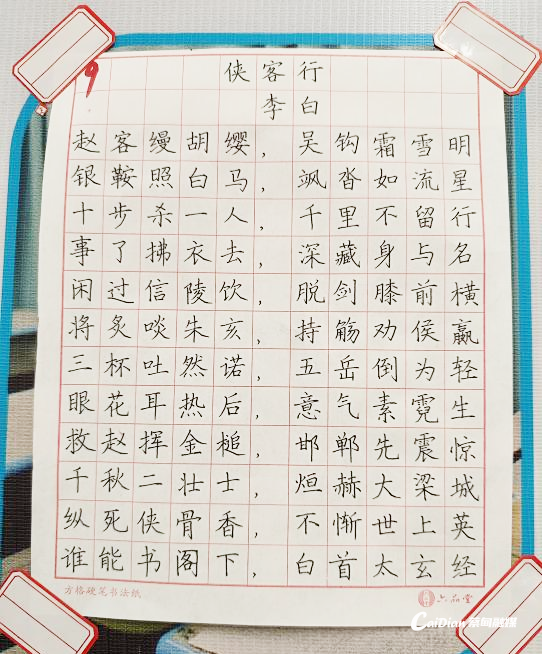 9
侠客行
李白
赵客缦胡缨，吴钩霜雪明
银鞍照白马，飒沓如流星
十步杀一人，千里不留行
事了拂衣去，深藏身与名
闲过信陵饮，脱剑膝前横
将炙啖朱亥，持觞劝侯嬴
三杯吐然诺，五岳倒为轻
眼花耳热后，意气素霓生
救赵挥金槌，邯郸先震惊
千秋二壮士，烜赫大梁城
纵死侠骨香，不惭世上英
谁能书阁下，白首太玄经
方格硬笔书法纸
六品堂
CaiDian 蔡甸融媒